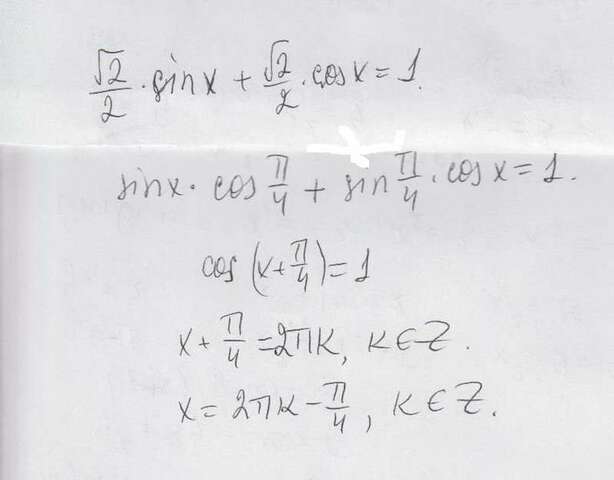 √2/2 · sinx + √2/2 · cosx = 1.
sinx · cos π/4 + sin π/4 · cos x = 1.
cos (x + π/4) = 1
x + π/4 = 2πk, k ∈ Z.
x = 2πk - π/4, k ∈ Z.